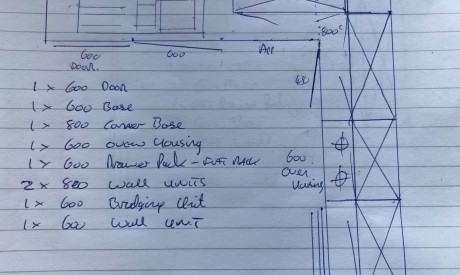 800c
600 600 All
Door.
1 x 600 Door
1 x 600 Base
1 x 800 Corner Base
1 x 600 oven Housing
1 x 600 Drawer Pack -
600
Oven
Housing
2 x 800 Wall Units
1 x 600 Bridging Unit
1 x 600 Wall Unit